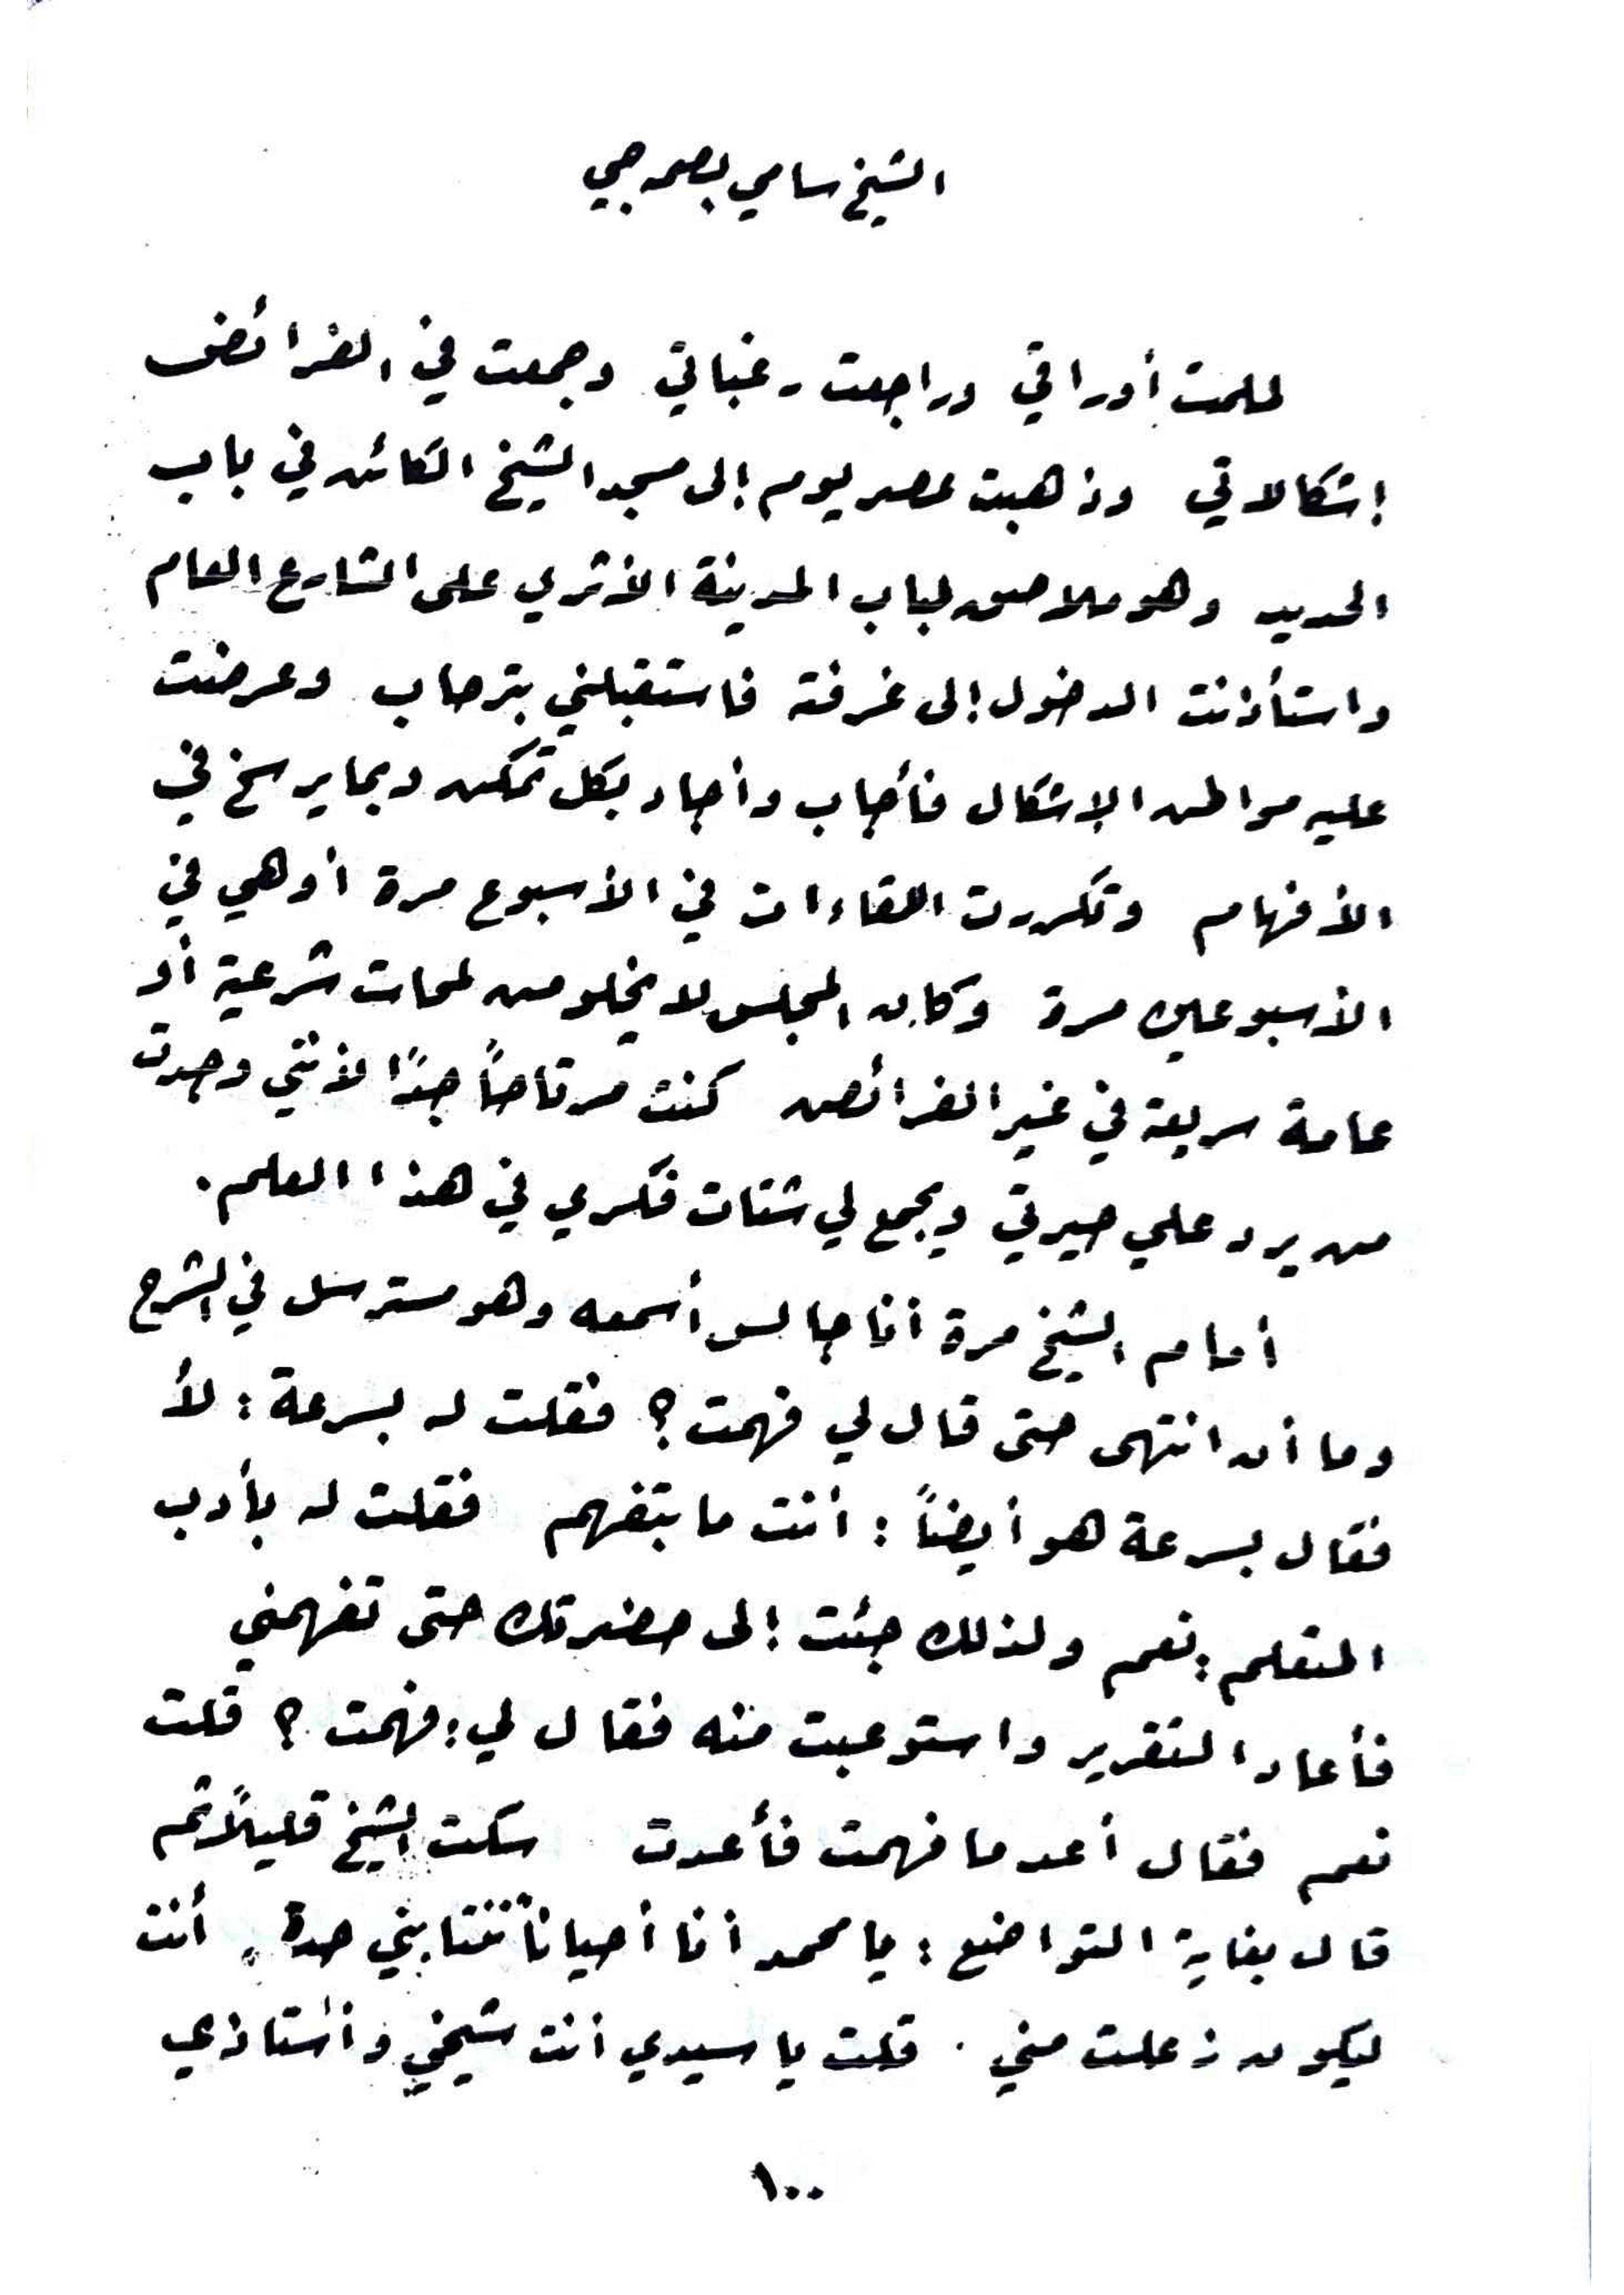 الشيخ سامي بصمه جي
لملمت أوراقي وراجعت رغباتي وجمعت في الفرائض
إشكالاتي وذهبت عصر يوم إلى مسجد الشيخ الكائن في باب
الحديد وهو ملاصق لباب المدينة الأثري على الشارع العام
واستأذنت الدخول إلى غرفته فاستقبلني بترحاب وعرضت
عليه مواطن الإشكال فأجاب وأجاد بكل تمكن وبما يرسخ في
الأفهام وتكررت اللقاءات في الأسبوع مرة أو هي في
الأسبوعين مرة وكان المجلس لا يخلو من لمحات شرعية أو
عامة سريعة في غير الفرائض كنت مرتاحاً جداً لأنني وجدت
من يرد علي حيرتي ويجمع لي شتات فكري في هذا العلم.
أمام الشيخ مرة أنا جالس أسمعه وهو مسترسل في الشرح
وما أن انتهى حتى قال لي فهمت؟ فقلت له بسرعة: لأ
فقال بسرعة هو أيضاً: أنت ما بتفهم فقلت له بأدب
المتعلم: نعم ولذلك جئت إلى حضرتك حتى تفهمني
فأعاد التقرير واستوعبت منه فقال لي: فهمت؟ قلت
نعم فقال أعد ما فهمت فأعدت سكت الشيخ قليلاً ثم
قال بغاية التواضع: يا محمد أنا أحياناً تنتابني حدة. أنت
ليكون زعلت مني. قلت يا سيدي أنت شيخي وأستاذي
١٠٠